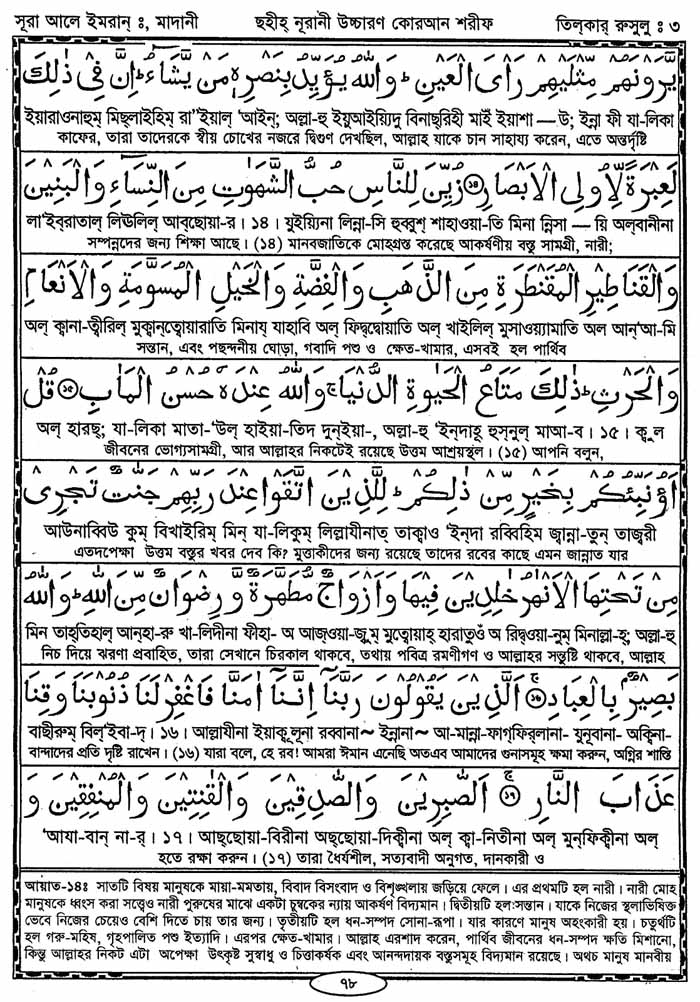 সূরা আলে ইমরান ঃ, মাদানী ছহীহ্ নূরানী উচ্চারণ কোরআন শরীফ তিল্কার্ রুসুলু ঃ ৩
يَّرَوْنَهُمْ مِّثْلَيْهِمْ رَأْىَ الْعَيْنِ ؕ وَاللّٰهُ يُؤَيِّدُ بِنَصْرِهٖ مَنْ يَّشَآءُ ؕ اِنَّ فِىْ ذٰلِكَ
ইয়ারাওনাহুম্ মিছ্লাইহিম্ রা''ইয়াল্ 'আইন্; অল্লা-হু ইয়ুআইয়্যিদু বিনাছ্রিহী মাইঁ ইয়াশা — উ; ইন্না ফী যা-লিকা
কাফের, তারা তাদেরকে স্বীয় চোখের নজরে দ্বিগুণ দেখছিল, আল্লাহ যাকে চান সাহায্য করেন, এতে অন্তর্দৃষ্টি
لَعِبْرَةً لِّاُولِى الْاَبْصَارِ ۝১৪ زُيِّنَ لِلنَّاسِ حُبُّ الشَّهَوٰتِ مِنَ النِّسَآءِ وَالْبَنِيْنَ
লা'ইব্রাতাল্ লিউলিল্ আব্ছোয়া-র। ১৪। যুইয়্যিনা লিন্না-সি হুব্বুশ্ শাহাওয়া-তি মিনা ন্নিসা — য়ি অল্বানীনা
সম্পন্নদের জন্য শিক্ষা আছে। (১৪) মানবজাতিকে মোহগ্রস্ত করেছে আকর্ষণীয় বস্তু সামগ্রী, নারী;
وَالْقَنَاطِيْرِ الْمُقَنْطَرَةِ مِنَ الذَّهَبِ وَالْفِضَّةِ وَالْخَيْلِ الْمُسَوَّمَةِ وَالْاَنْعَامِ
অল্ ক্বানা-ত্বীরিল্ মুক্বান্ত্বোয়ারাতি মিনায্ যাহাবি অল্ ফিদ্বদ্বোয়াতি অল্ খাইলিল্ মুসাওয়্যামাতি অল আন্'আ-মি
সন্তান, এবং পছন্দনীয় ঘোড়া, গবাদি পশু ও ক্ষেত-খামার, এসবই হল পার্থিব
وَالْحَرْثِ ؕ ذٰلِكَ مَتَاعُ الْحَيٰوةِ الدُّنْيَا ۚ وَاللّٰهُ عِنْدَهٗ حُسْنُ الْمَاٰبِ ۝১৫ قُلْ
অল্ হারছ্; যা-লিকা মাতা-'উল্ হাইয়া-তিদ দুন্ইয়া-, অল্লা-হু 'ইন্দাহূ হুস্নুল্ মাআ-ব। ১৫। ক্বুল
জীবনের ভোগ্যসামগ্রী, আর আল্লাহর নিকটেই রয়েছে উত্তম আশ্রয়স্থল। (১৫) আপনি বলুন,
اَؤُنَبِّئُكُمْ بِخَيْرٍ مِّنْ ذٰلِكُمْ ؕ لِلَّذِيْنَ اتَّقَوْا عِنْدَ رَبِّهِمْ جَنّٰتٌ تَجْرِىْ
আউনাব্বিউ কুম্ বিখাইরিম্ মিন্ যা-লিকুম্ লিল্লাযীনাত্ তাক্বাও 'ইন্দা রব্বিহিম জ্বান্না-তুন্ তাজ্বরী
এতদপেক্ষা উত্তম বস্তুর খবর দেব কি? মুত্তাকীদের জন্য রয়েছে তাদের রবের কাছে এমন জান্নাত যার
مِنْ تَحْتِهَا الْاَنْهٰرُ خٰلِدِيْنَ فِيْهَا وَاَزْوَاجٌ مُّطَهَّرَةٌ وَّرِضْوَانٌ مِّنَ اللّٰهِ ؕ وَاللّٰهُ
মিন তাহ্তিহাল্ আন্হা-রু খা-লিদীনা ফীহা- অ আজ্ওয়া-জুম্ মুত্বোয়াহ্ হারাতুওঁ অ রিদ্ব্ওয়া-নুম্ মিনাল্লা-হ্; অল্লা-হু
নিচ দিয়ে ঝরণা প্রবাহিত, তারা সেখানে চিরকাল থাকবে, তথায় পবিত্র রমণীগণ ও আল্লাহর সন্তুষ্টি থাকবে, আল্লাহ
بَصِيْرٌۢ بِالْعِبَادِ ۝১৬ اَلَّذِيْنَ يَقُوْلُوْنَ رَبَّنَآ اِنَّنَآ اٰمَنَّا فَاغْفِرْ لَنَا ذُنُوْبَنَا وَقِنَا
বাছীরুম্ বিল্'ইবা-দ্। ১৬। আল্লাযীনা ইয়াক্বূলূনা রব্বানা~ ইন্নানা~ আ-মান্না-ফাগ্ফির্লানা- যুনূবানা- অক্বিনা-
বান্দাদের প্রতি দৃষ্টি রাখেন। (১৬) যারা বলে, হে রব! আমরা ঈমান এনেছি অতএব আমাদের গুনাসমূহ ক্ষমা করুন, অগ্নির শাস্তি
عَذَابَ النَّارِ ۝১৭ اَلصّٰبِرِيْنَ وَالصّٰدِقِيْنَ وَالْقٰنِتِيْنَ وَالْمُنْفِقِيْنَ وَ
'আযা-বান্ না-র্। ১৭। আছ্ছোয়া-বিরীনা অছ্ছোয়া-দিক্বীনা অল্ ক্বা-নিতীনা অল্ মুন্ফিক্বীনা অল্
হতে রক্ষা করুন। (১৭) তারা ধৈর্যশীল, সত্যবাদী অনুগত, দানকারী ও
আয়াত-১৪ঃ সাতটি বিষয় মানুষকে মায়া-মমতায়, বিবাদ বিসংবাদ ও বিশৃঙ্খলায় জড়িয়ে ফেলে। এর প্রথমটি হল নারী। নারী মোহ
মানুষকে ধ্বংস করা সত্ত্বেও নারী পুরুষের মাঝে একটা চুম্বকের ন্যায় আকর্ষণ বিদ্যমান। দ্বিতীয়টি হলঃসন্তান। যাকে নিজের স্থলাভিষিক্ত
ভেবে নিজের চেয়েও বেশি দিতে চায় তার জন্য। তৃতীয়টি হল ধন-সম্পদ সোনা-রূপা। যার কারণে মানুষ অহংকারী হয়। চতুর্থটি
হল গরু-মহিষ, গৃহপালিত পশু ইত্যাদি। এরপর ক্ষেত-খামার। আল্লাহ এরশাদ করেন, পার্থিব জীবনের ধন-সম্পদ ক্ষতি মিশানো,
কিন্তু আল্লাহর নিকট এটা অপেক্ষা উৎকৃষ্ট সুস্বাধু ও চিত্তাকর্ষক এবং আনন্দদায়ক বস্তুসমূহ বিদ্যমান রয়েছে। অথচ মানুষ মানবীয়
৭৮